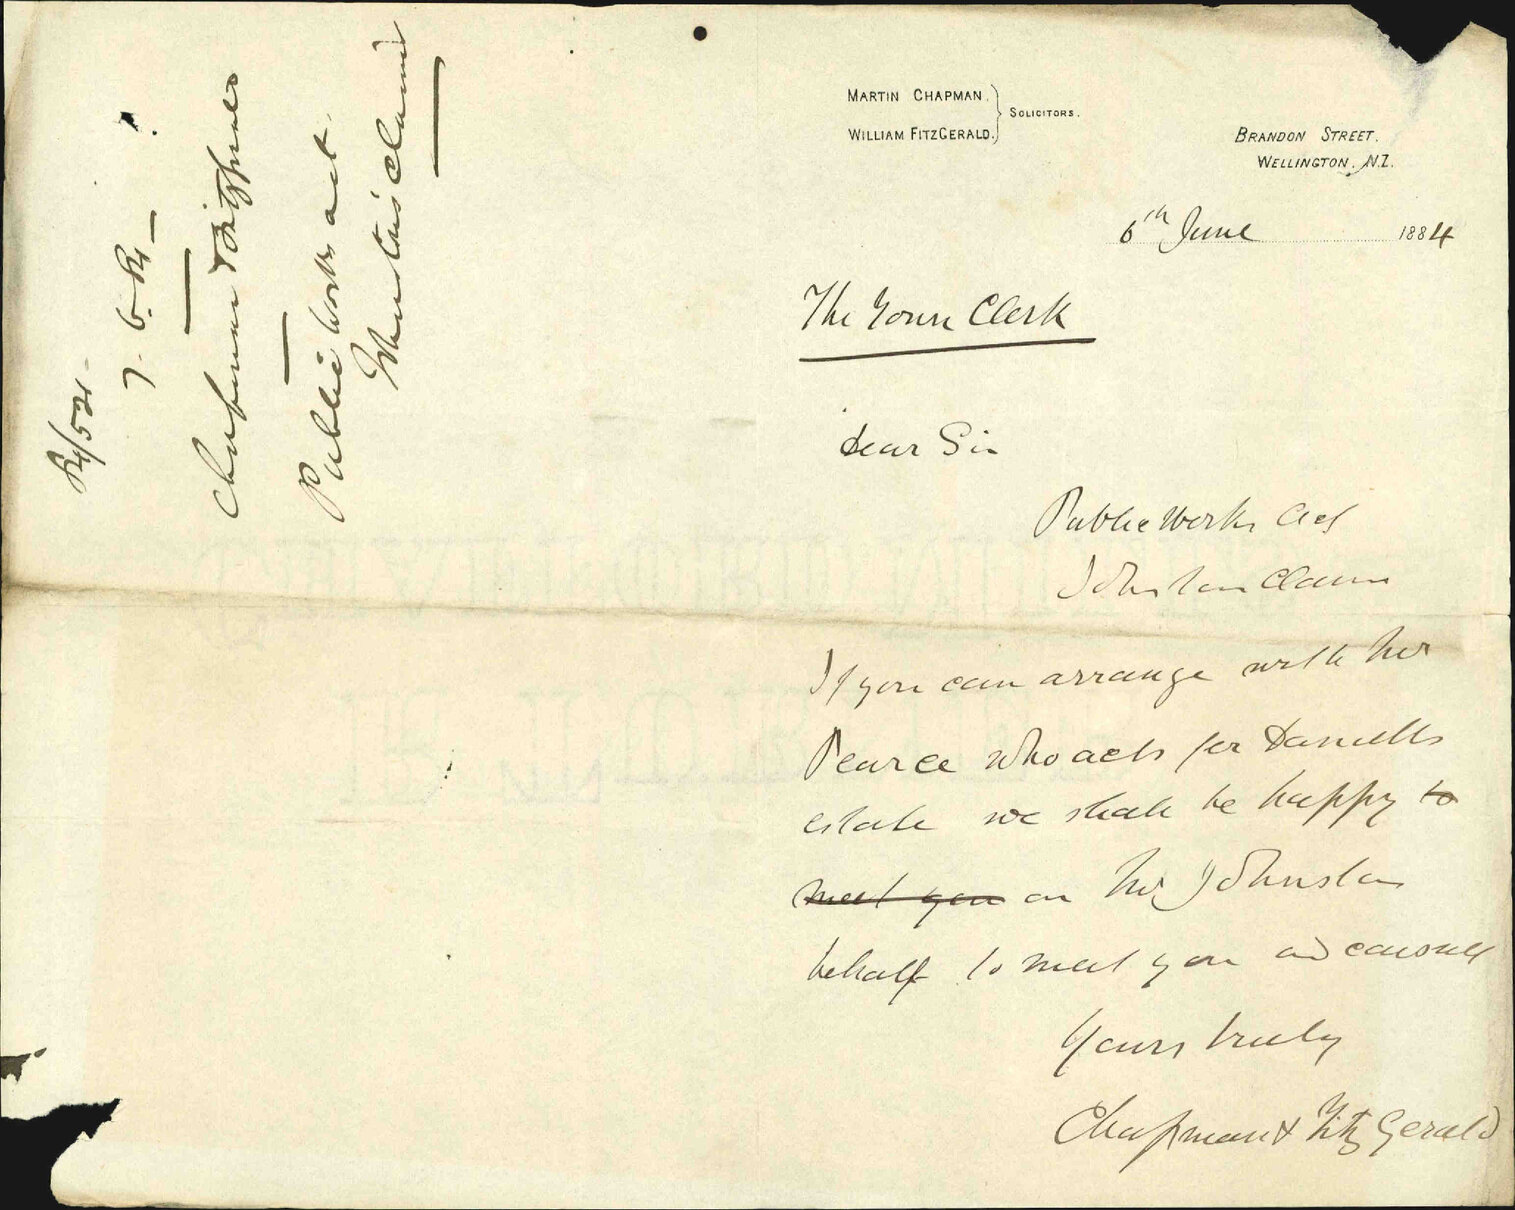 84/521
7. 6. 84
Chapman & Fitzgerald
Public Works Act.
Claim
MARTIN CHAPMAN.
WILLIAM FITZGERALD.
SOLICITORS.
BRANDON STREET.
WELLINGTON. N.Z.
6th June 1884
The Town Clerk
Dear Sir
Public Works Act
Johnston Claim
If you can arrange with Mr
Pearce who acts for
estate we shall be happy to
meet you on Mr Johnston
behalf to meet you and
Yours truly
Chapman & FitzGerald